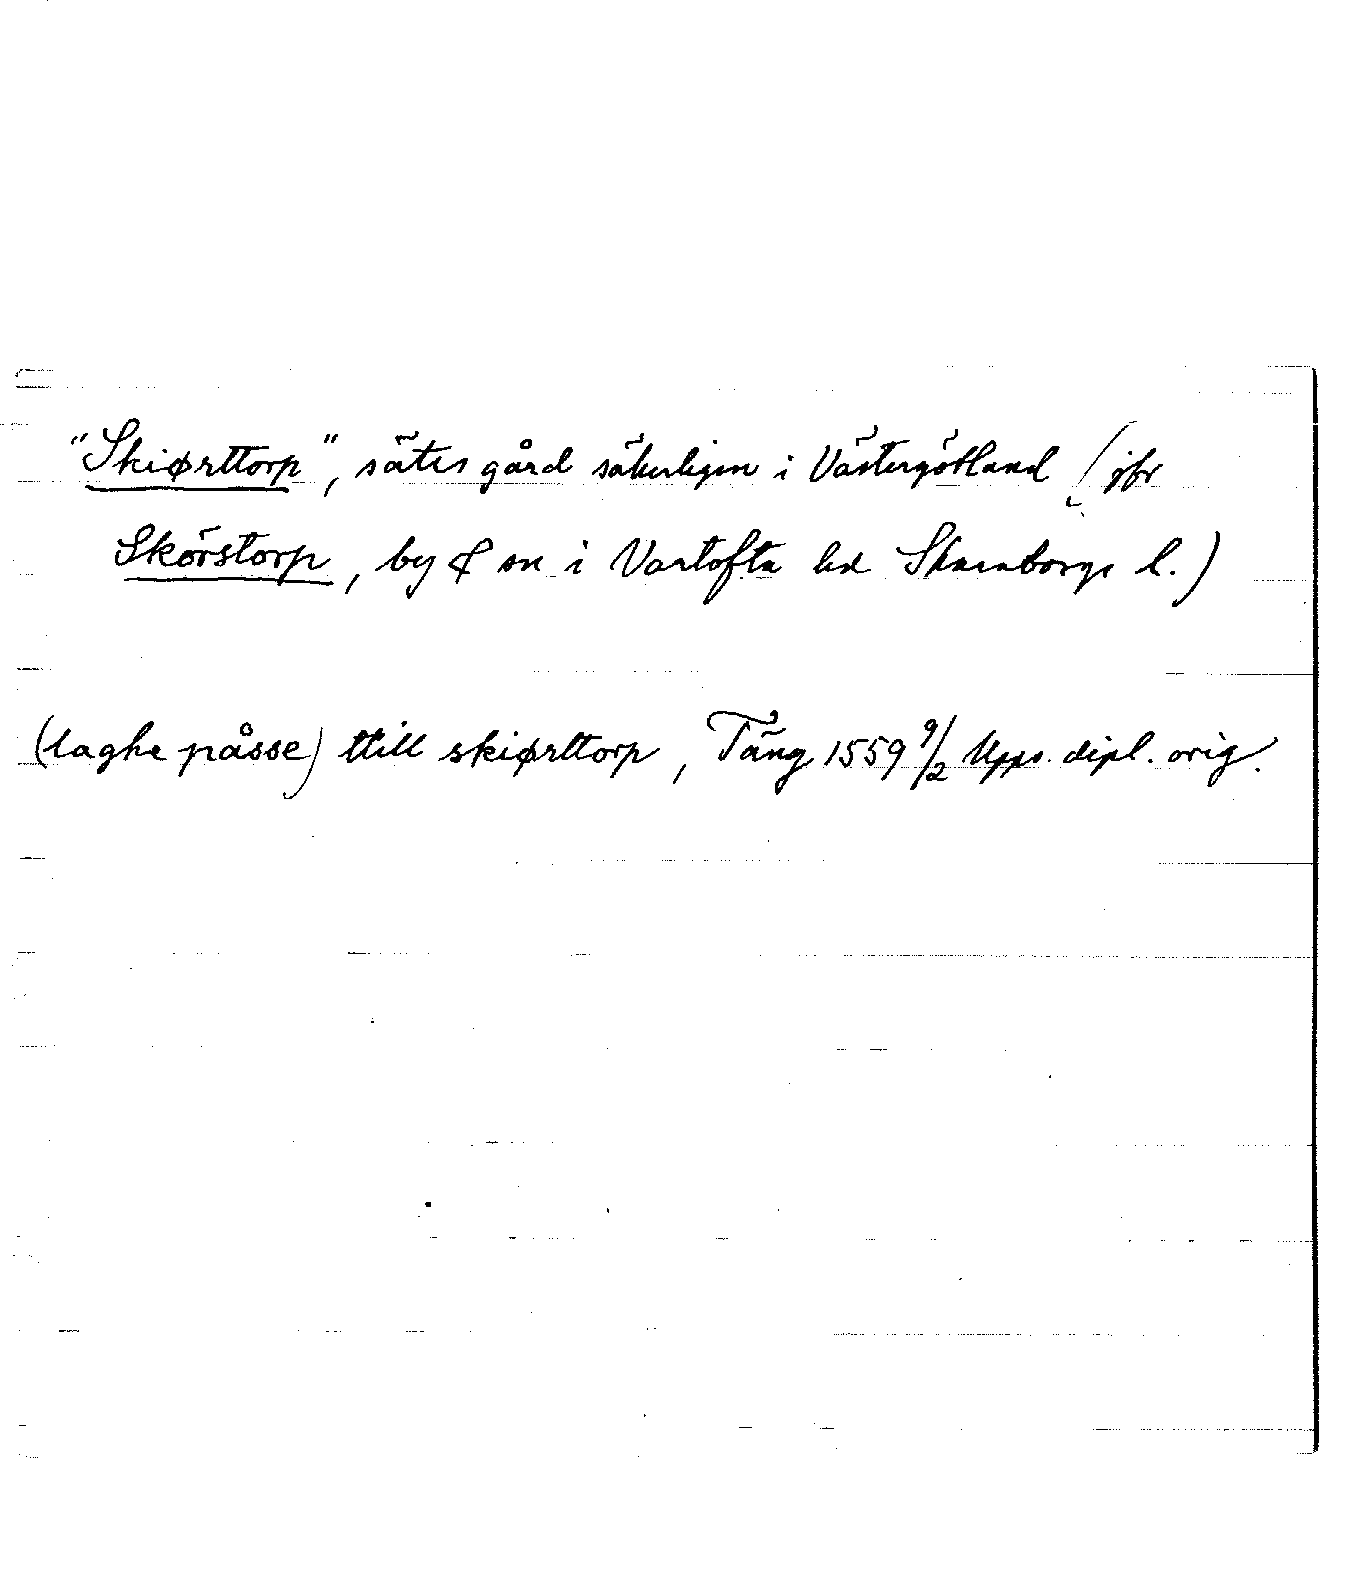 "Skiørttorp", sätes gård säkerligen i Västergötland (jfr
Skörstorp, by & sn i Vartofta hd Skaraborgs l.)
(laghe påsse) ttill skiørttorp, Täng 1559 9/2 Upps. dipl. orig.